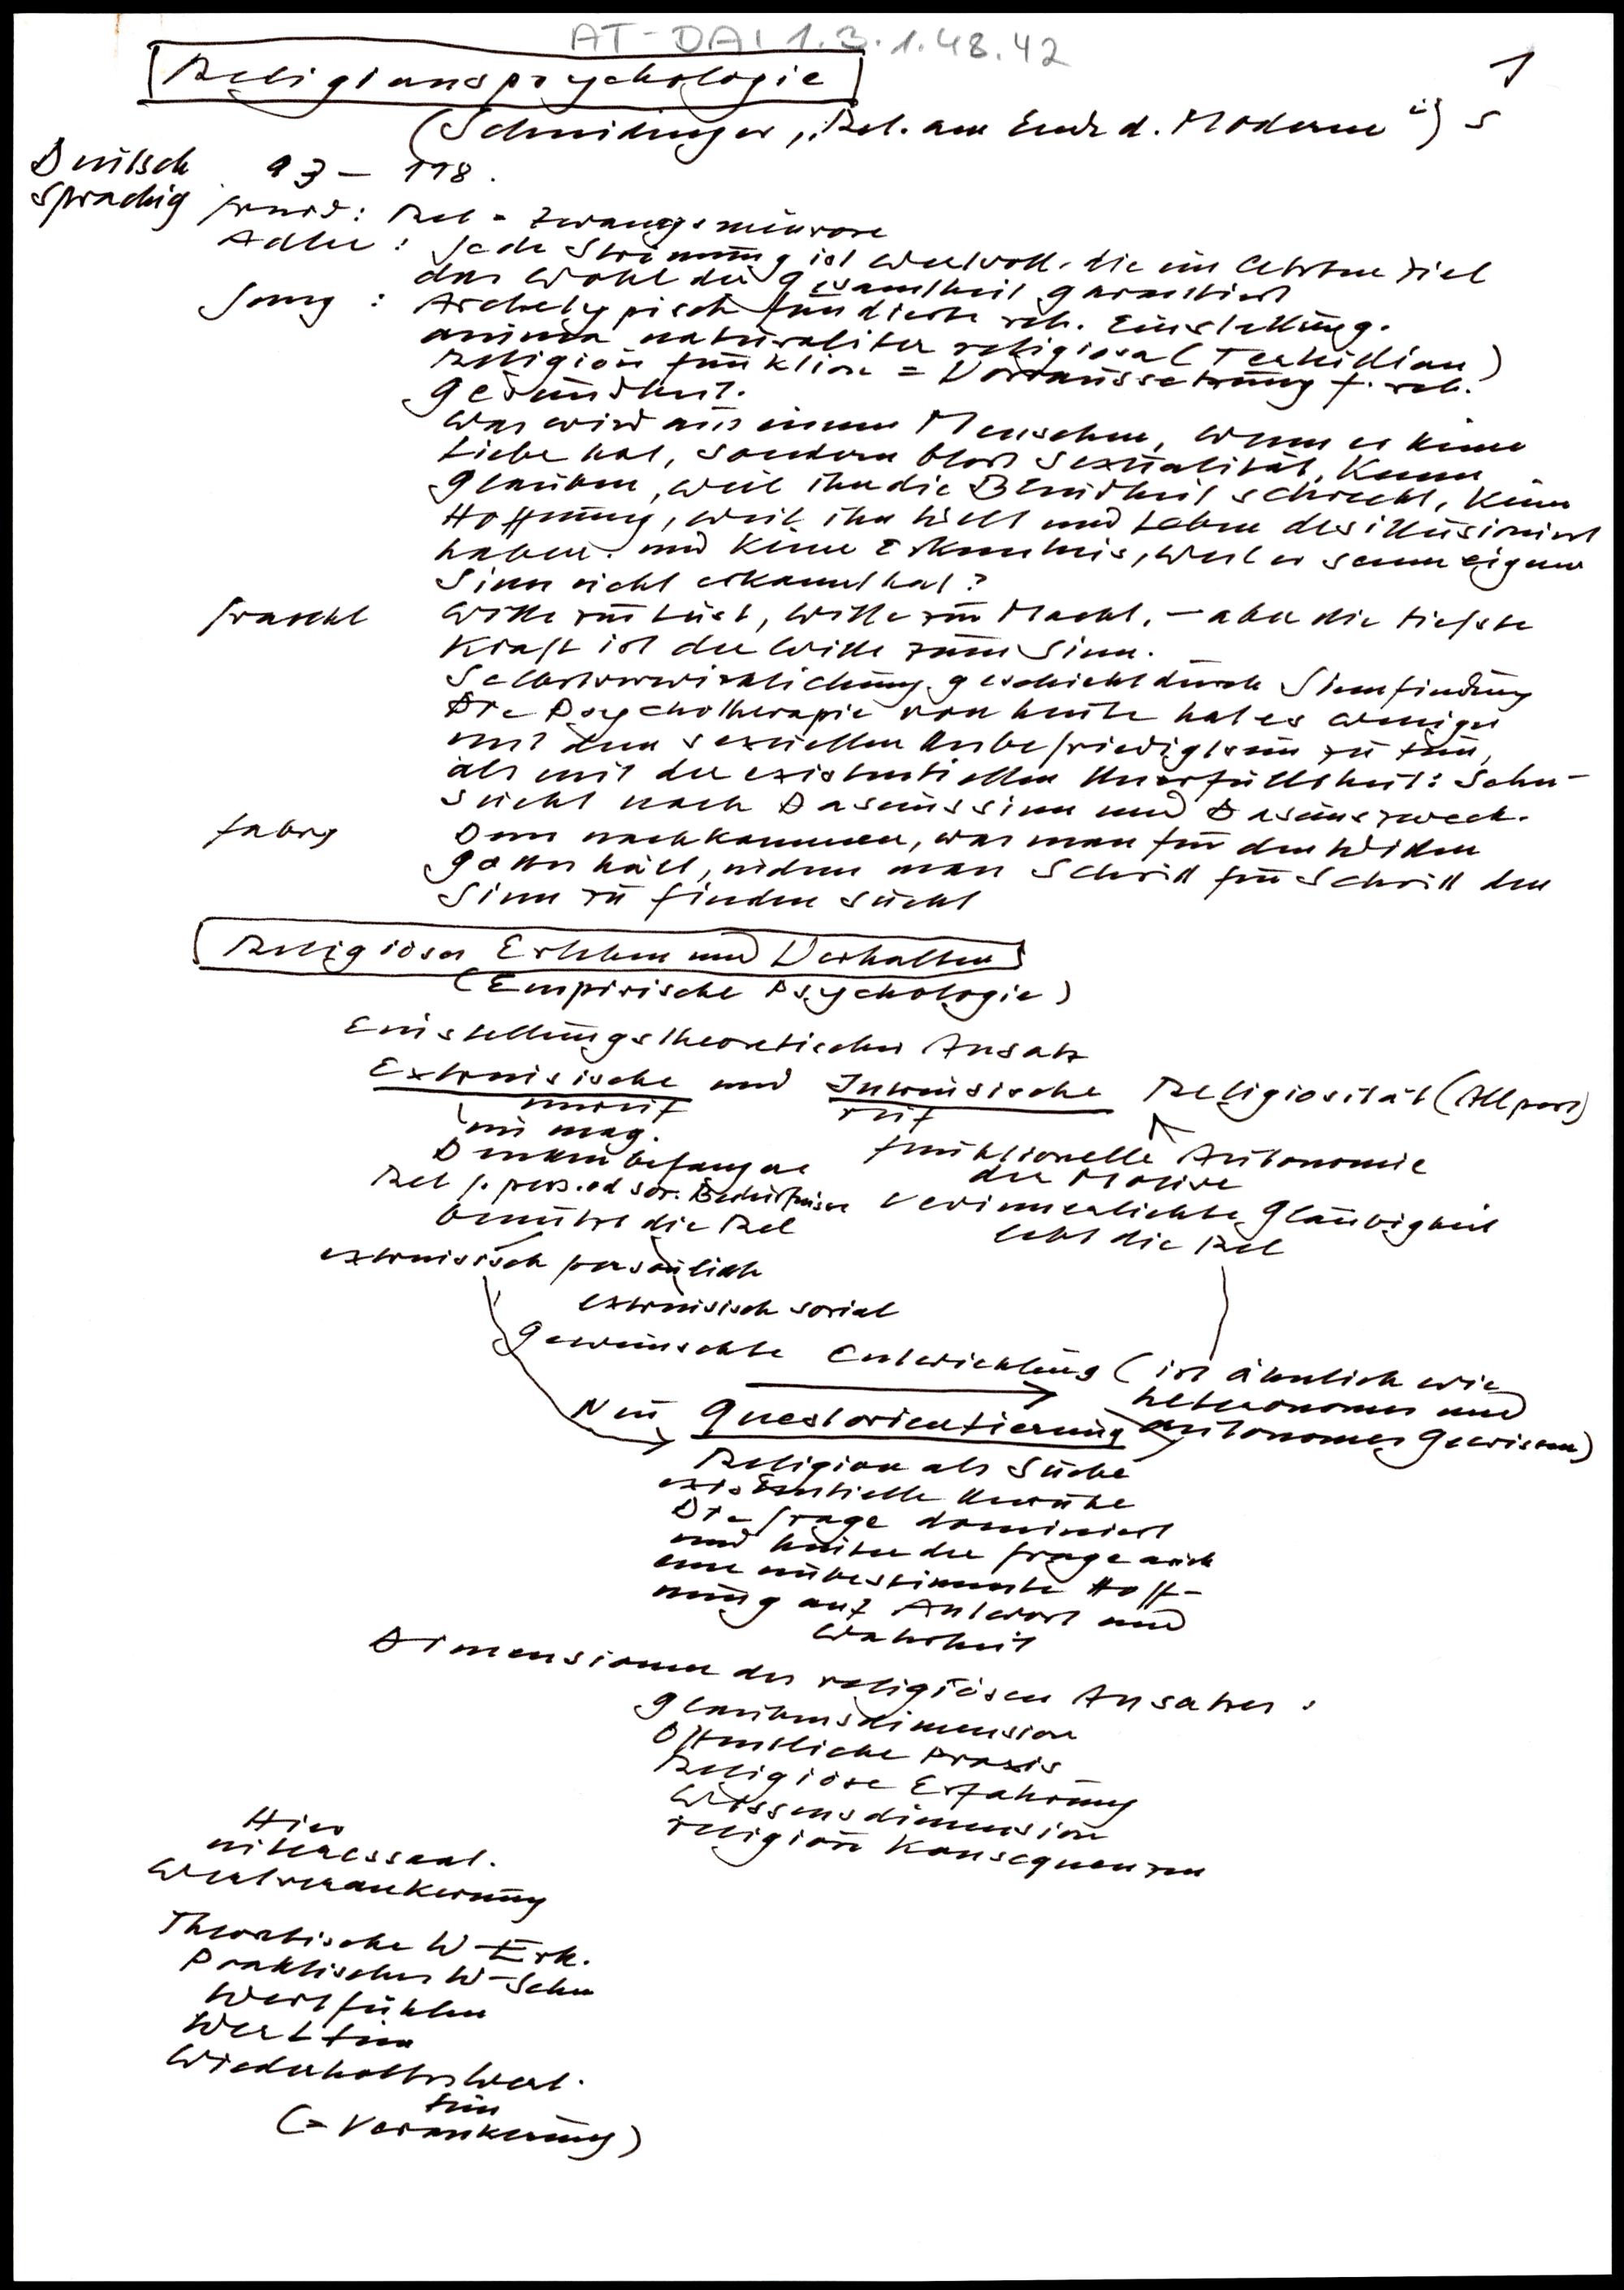 AT-DAI 1.3.1.48.42
1
Religionspsychologie
(Schmidinger, "Rel. am Ende d. Moderne") S
Deutsch 93 – 118.
sprachig
Freud: Rel = Zwangsneurose
Adler: Jede Strömung ist wertvoll, die im letzten Ziel
das Wohl der Gesamtheit garantiert
Jung: Archetypisch fundierte rel. Einstellung.
anima naturaliter religiosa (Tertullian)
Religion funktion = Voraussetzung f. rel.
Gesundheit.
Was wird aus einem Menschen, wenn er keine
Liebe hat, sondern bloss Sexualität, keinen
Glauben, weil ihn die Blindheit schreckt, keine
Hoffnung, weil ihn Welt und Leben desillusioniert
haben und keine Erkenntnis, weil er seinen eigenen
Sinn nicht erkannt hat?
Frankl Wille zur Lust, Wille zur Macht, – aber die tiefste
Kraft ist der Wille zum Sinn.
Selbstverwirklichung geschieht durch Sinnfindung
Die Psychotherapie von heute hat es weniger
mit dem sexuellen Unbefriedigtsein zu tun,
als mit der existentiellen Unerfülltheit: Sehn-
sucht nach Daseinssinn und Daseinszweck.
Fabry Dem nachkommen, was man für den Willen
Gottes hält, indem man Schritt für Schritt den
Sinn zu finden sucht
Religiöses Erleben und Verhalten
(Empirische Psychologie)
Einstellungstheoretischer Ansatz
Extrinsische und Intrinsische Religiosität (Allport)
unreif reif
im mag.
Denken befangene funktionelle Autonomie
der Motive
Rel f. pers. od soz. Bedürfnisse verinnerlichte Gläubigkeit
benützt die Rel lebt die Rel
extrinsisch persönlich
extrinsisch sozial
gewünschte Entwicklung (ist ähnlich wie
heteronomes und
autonomes Gewissen)
Neu Questorientierung
Religion als Suche
existentielle Unruhe
Die Frage dominiert
und hinter der Frage auch
eine unbestimmte Hoff-
nung auf Antwort und
Wahrheit
Dimensionen des religiösen Ansatzes:
Glaubensdimension
Öffentliche Praxis
Religiöse Erfahrung
Wissensdimension
religiöse Konsequenzen
Hier
interessant.
Wertverankerung
Theoretische W-Erk.
Praktisches W-Sehn
Wertfühlen
Wert tun
Wiederholtes Wert.
tun
(= Verankerung)